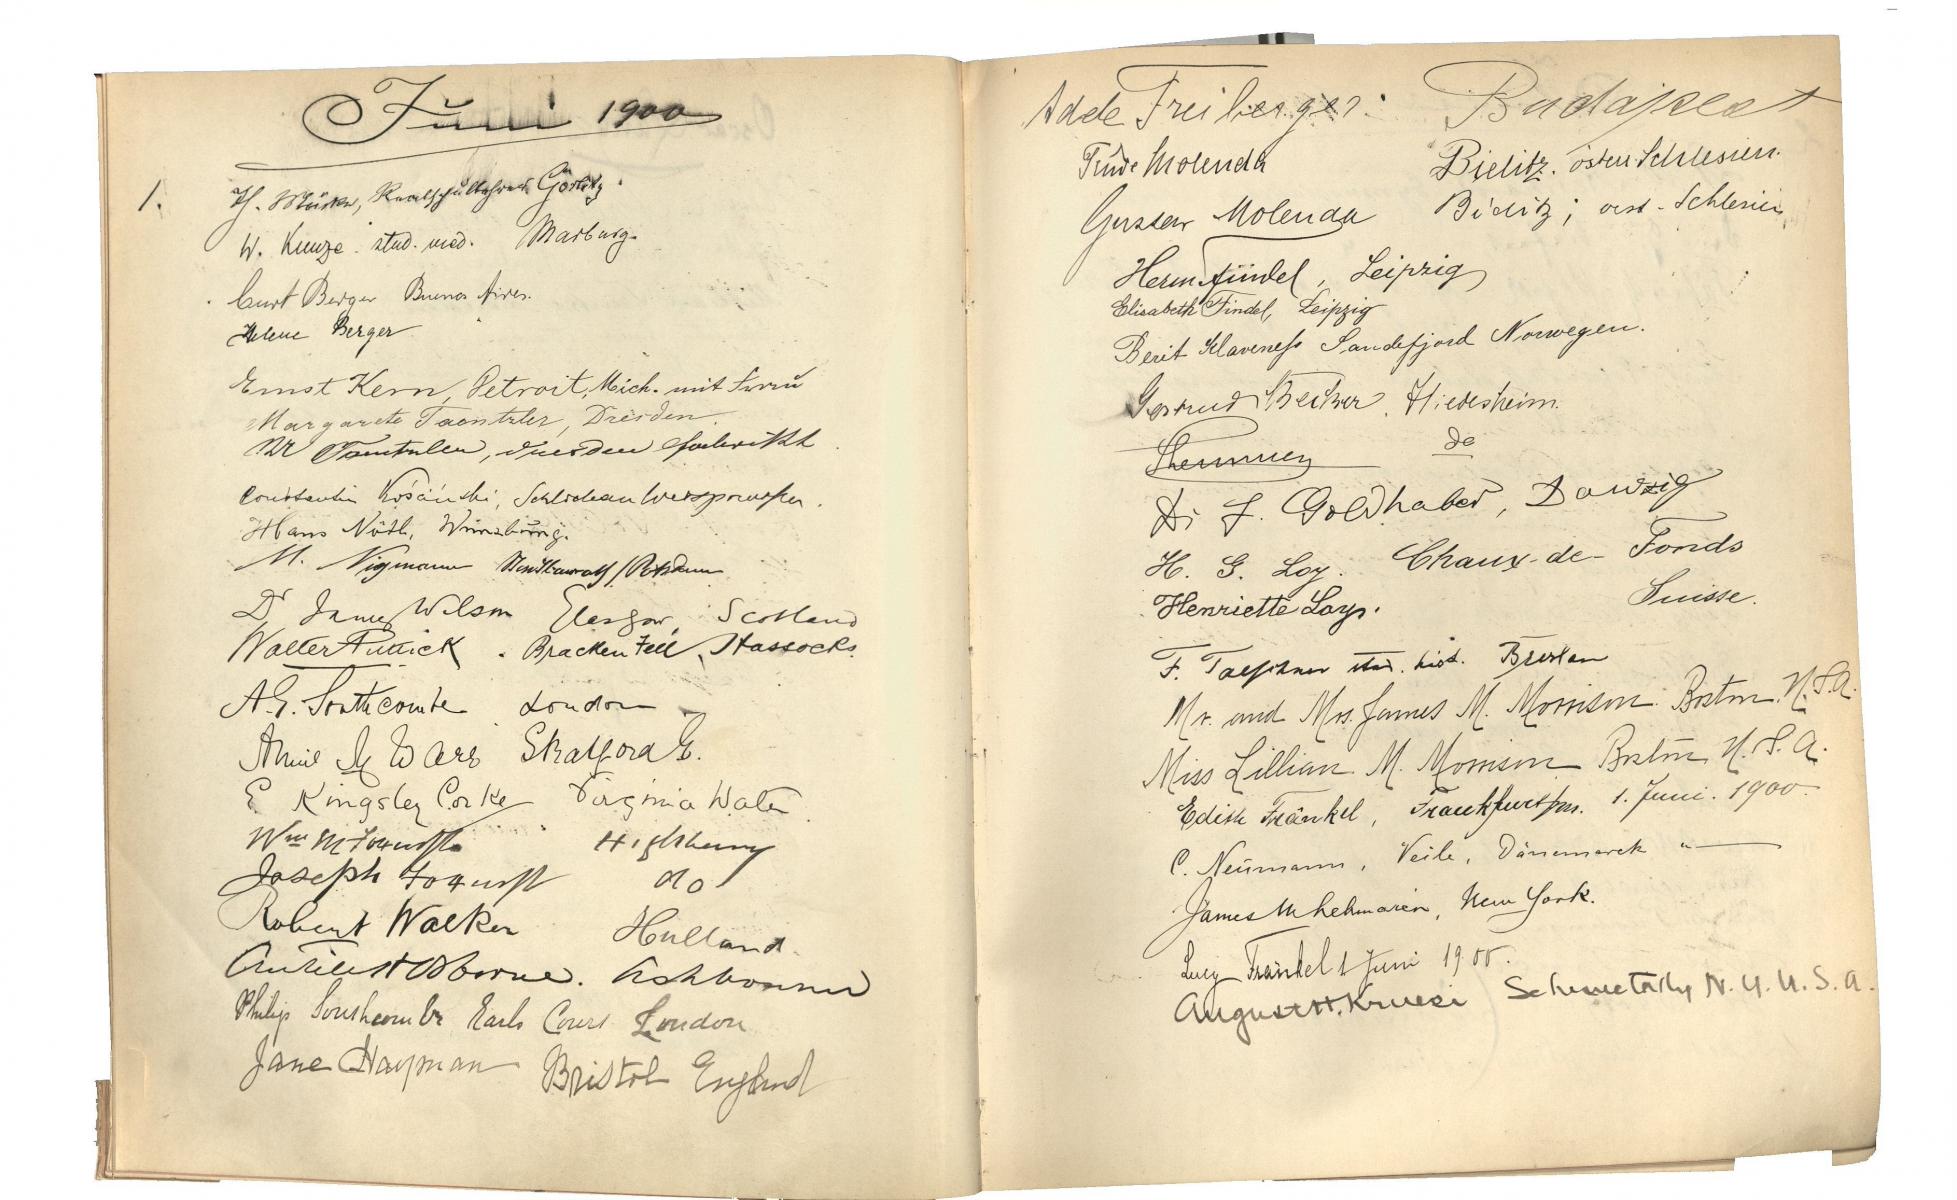 Juni 1900
1.
Görlitz.
W. Kunze stud. med. Marburg.
Curt Berger Buenos Aires.
Helene Berger
Ernst Kern, Detroit, Mich. mit Frau
Margarete Taentzler, Dresden
Dresden
Constantin
Hans Nöth, Würzburg.
M. Nigmann
Dr James Wilson Glasgow, Scotland
Walter Puttick. Bracken Fell, Hassocks.
A. G. Southcombe London
Stratford E.
E Kingsley Corke Virginia Water
Wm M Foxcroft Highbury
Joseph Foxcroft do
Robert Walker Holland
Osborne. Ashbourne
Philip Southcombe Earls Court London
Jane Hayman Bristol England
Adde Freiberger. Budapest
Trude Molenda Bielitz. österr. Schlesien.
Gustav Molenda Bielitz; oest-Schlesien
Herm Findel, Leipzig
Elisabeth Findel, Leipzig
Berit Klaveness Sandefjord Norwegen.
Gertrud Becker. Hildesheim.
do
Dr J. Goldhaber, Danzig
H. G. Loy. Chaux-de-Fonds
Henriette Loy. Suisse.
F. Taeschner stud. Breslau
Mr. and Mrs. James M. Morrison. Boston. U.S.A.
Miss Lillian M. Morrison Boston U.S.A.
Edith Fränkel, Frankfurt a/m. 1. Juni. 1900.
C. Neumann, Veile, Dänemarck "
James New York.
Lucy Fränkel 1 Juni 1900.
August H. Kruesi Schenectady N.Y.U.S.A.